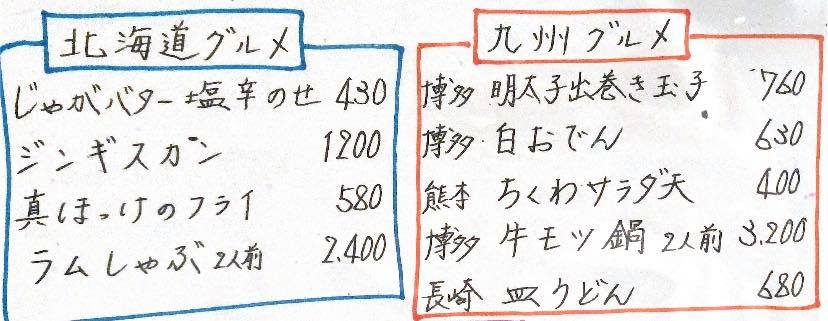 北海道グルメ
じゃがバター塩辛のせ 430
ジンギスカン 1200
真ほっけのフライ 580
ラムしゃぶ 2人前 2.400
九州グルメ
博多 明太子出巻き玉子 760
博多 白おでん 630
熊本 ちくわサラダ天 400
博多 牛モツ鍋 2人前 3.200
長崎 皿うどん 680